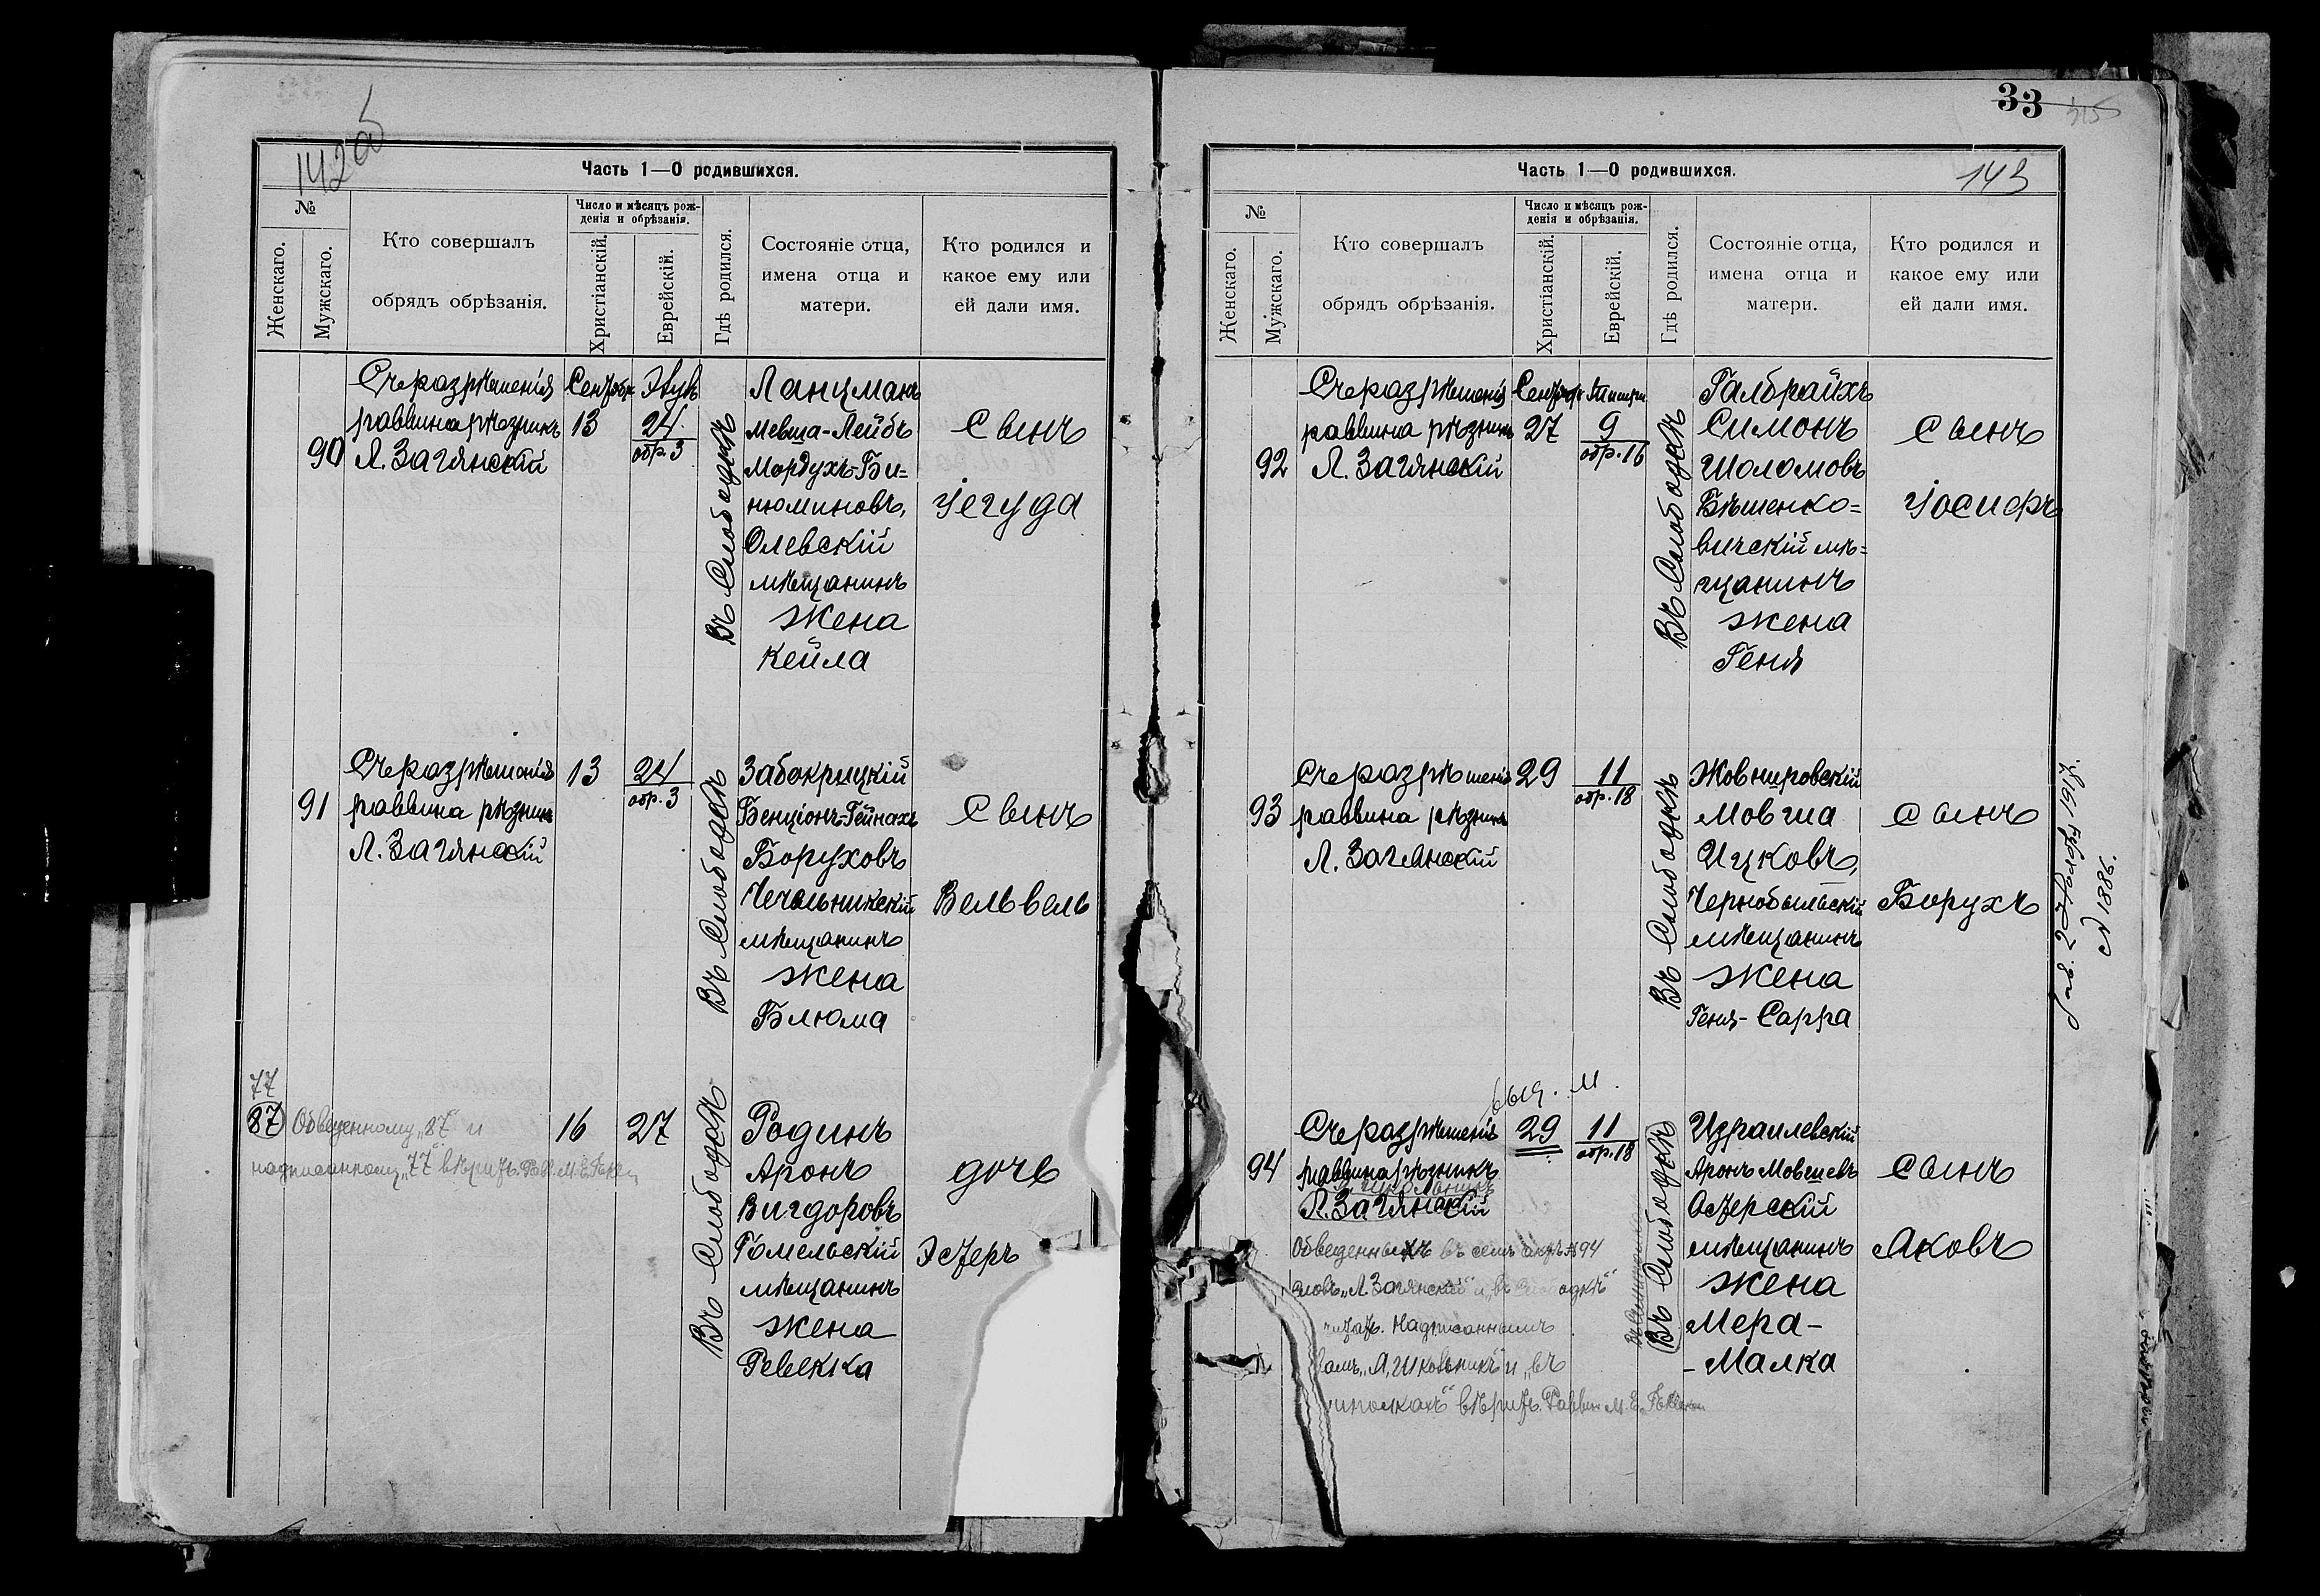 142 об
Часть 1—О родившихся.
№
Женскаго.
Мужскаго.
Кто совершалъ
обрядъ обрѣзанія.
Число и мѣсяцъ рож-
денія и обрѣзанія.
Христіанскій.
Еврейскій.
Гдѣ родился.
Состояніе отца,
имена отца и
матери.
Кто родился и
какое ему или
ей дали имя.
90
Съ разрѣшенія
раввина рѣзникъ
Л. Загянскій
Сентябр
13
Элулъ
24
обр. 3
Въ Слободкѣ
Ланцманъ
Мевша-Лейбъ
Мордухъ-Би=
нюминовъ,
Олевскій
мѣщанинъ
жена
Кейла
Сынъ
Іегуда
91
Съ разрѣшенія
раввина рѣзникъ
Л. Загянскій
13
24
обр. 3
Въ Слободкѣ
Забокрицкій
Бенціонъ-Гейнахъ
Боруховъ
Чечельникскій
мѣщанинъ
жена
Блюма
Сынъ
Вельвель
77
87
Обведенному „87“ и
надписанному „77“ вѣрить. Рав. М. Е.
16
27
Въ Слободкѣ
Родинъ
Аронъ
Вигдоровъ
Гомельскій
мѣщанинъ
жена
Ревекка
дочь
Эстеръ
33
143
Часть 1—О родившихся.
№
Женскаго.
Мужскаго.
Кто совершалъ
обрядъ обрѣзанія.
Число и мѣсяцъ рож-
денія и обрѣзанія.
Христіанскій.
Еврейскій.
Гдѣ родился.
Состояніе отца,
имена отца и
матери.
Кто родился и
какое ему или
ей дали имя.
92
Съ разрѣшенія
раввина рѣзникъ
Л. Загянскій
Сентябр
27
Тишри
9
обр. 16
Въ Слободкѣ
Галбрайхъ
Симонъ
Шоломовъ
Бѣшенко=
вичскій мѣ=
щанинъ
жена
Геня
Сынъ
Іосифъ
93
Съ разрѣшенія
раввина рѣзникъ
Л. Загянскій
29
11
обр. 18
Въ Слободкѣ
Жовнировскій
Мовша
Ицковъ,
Чернобыльскій
мѣщанинъ
жена
Геня-Сарра
Сынъ
Борухъ
2 1917.
№ 1886.
выд. М.
94
Съ разрѣшенія
раввина рѣзникъ
Л. Загянскій
29
11
обр. 18
Въ Слободкѣ
Израилевскій
Аронъ Мовшевъ
Остерскій
мѣщанинъ
жена
Мера-
-Малка
Сынъ
Яковъ
Обведенныхъ въ семъ актѣ №94
словъ „Л. Загянскій“ и „въ Слободкѣ“
читать. Надписаннымъ
и „въ
вѣрить. Раввин М. Е.